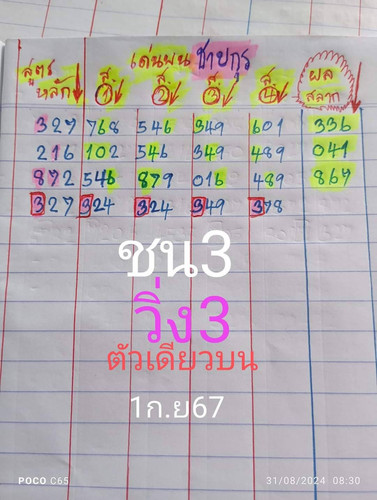 สูตร หลัก เด่นบน ชายกุร ผล สลาก
ส1 ส2 ส3 ส4
327 768 546 349 601 336
216 102 546 349 489 041
872 546 879 016 489 867
327 324 324 349 378
ชน3
วิ่ง3
ตัวเดียวบน
1ก.ย67
POCO C65 31/08/2024 08:30